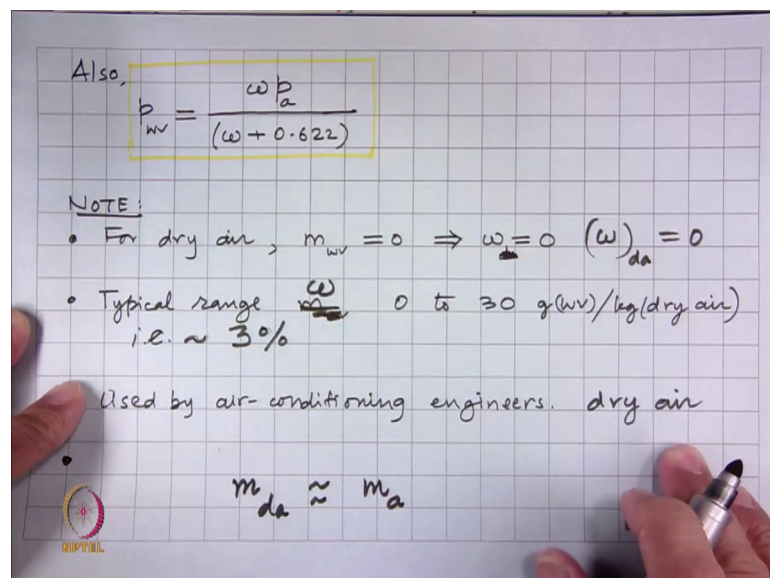 Also,
p_wv = ω p_a / (ω + 0.622)
NOTE:
• For dry air, m_wv = 0 ⇒ ω = 0 (ω)_da = 0
• Typical range ω 0 to 30 g(wv)/kg(dry air)
i.e. ~ 3%
Used by air-conditioning engineers. dry air
•
m_da ≈ m_a
NPTEL